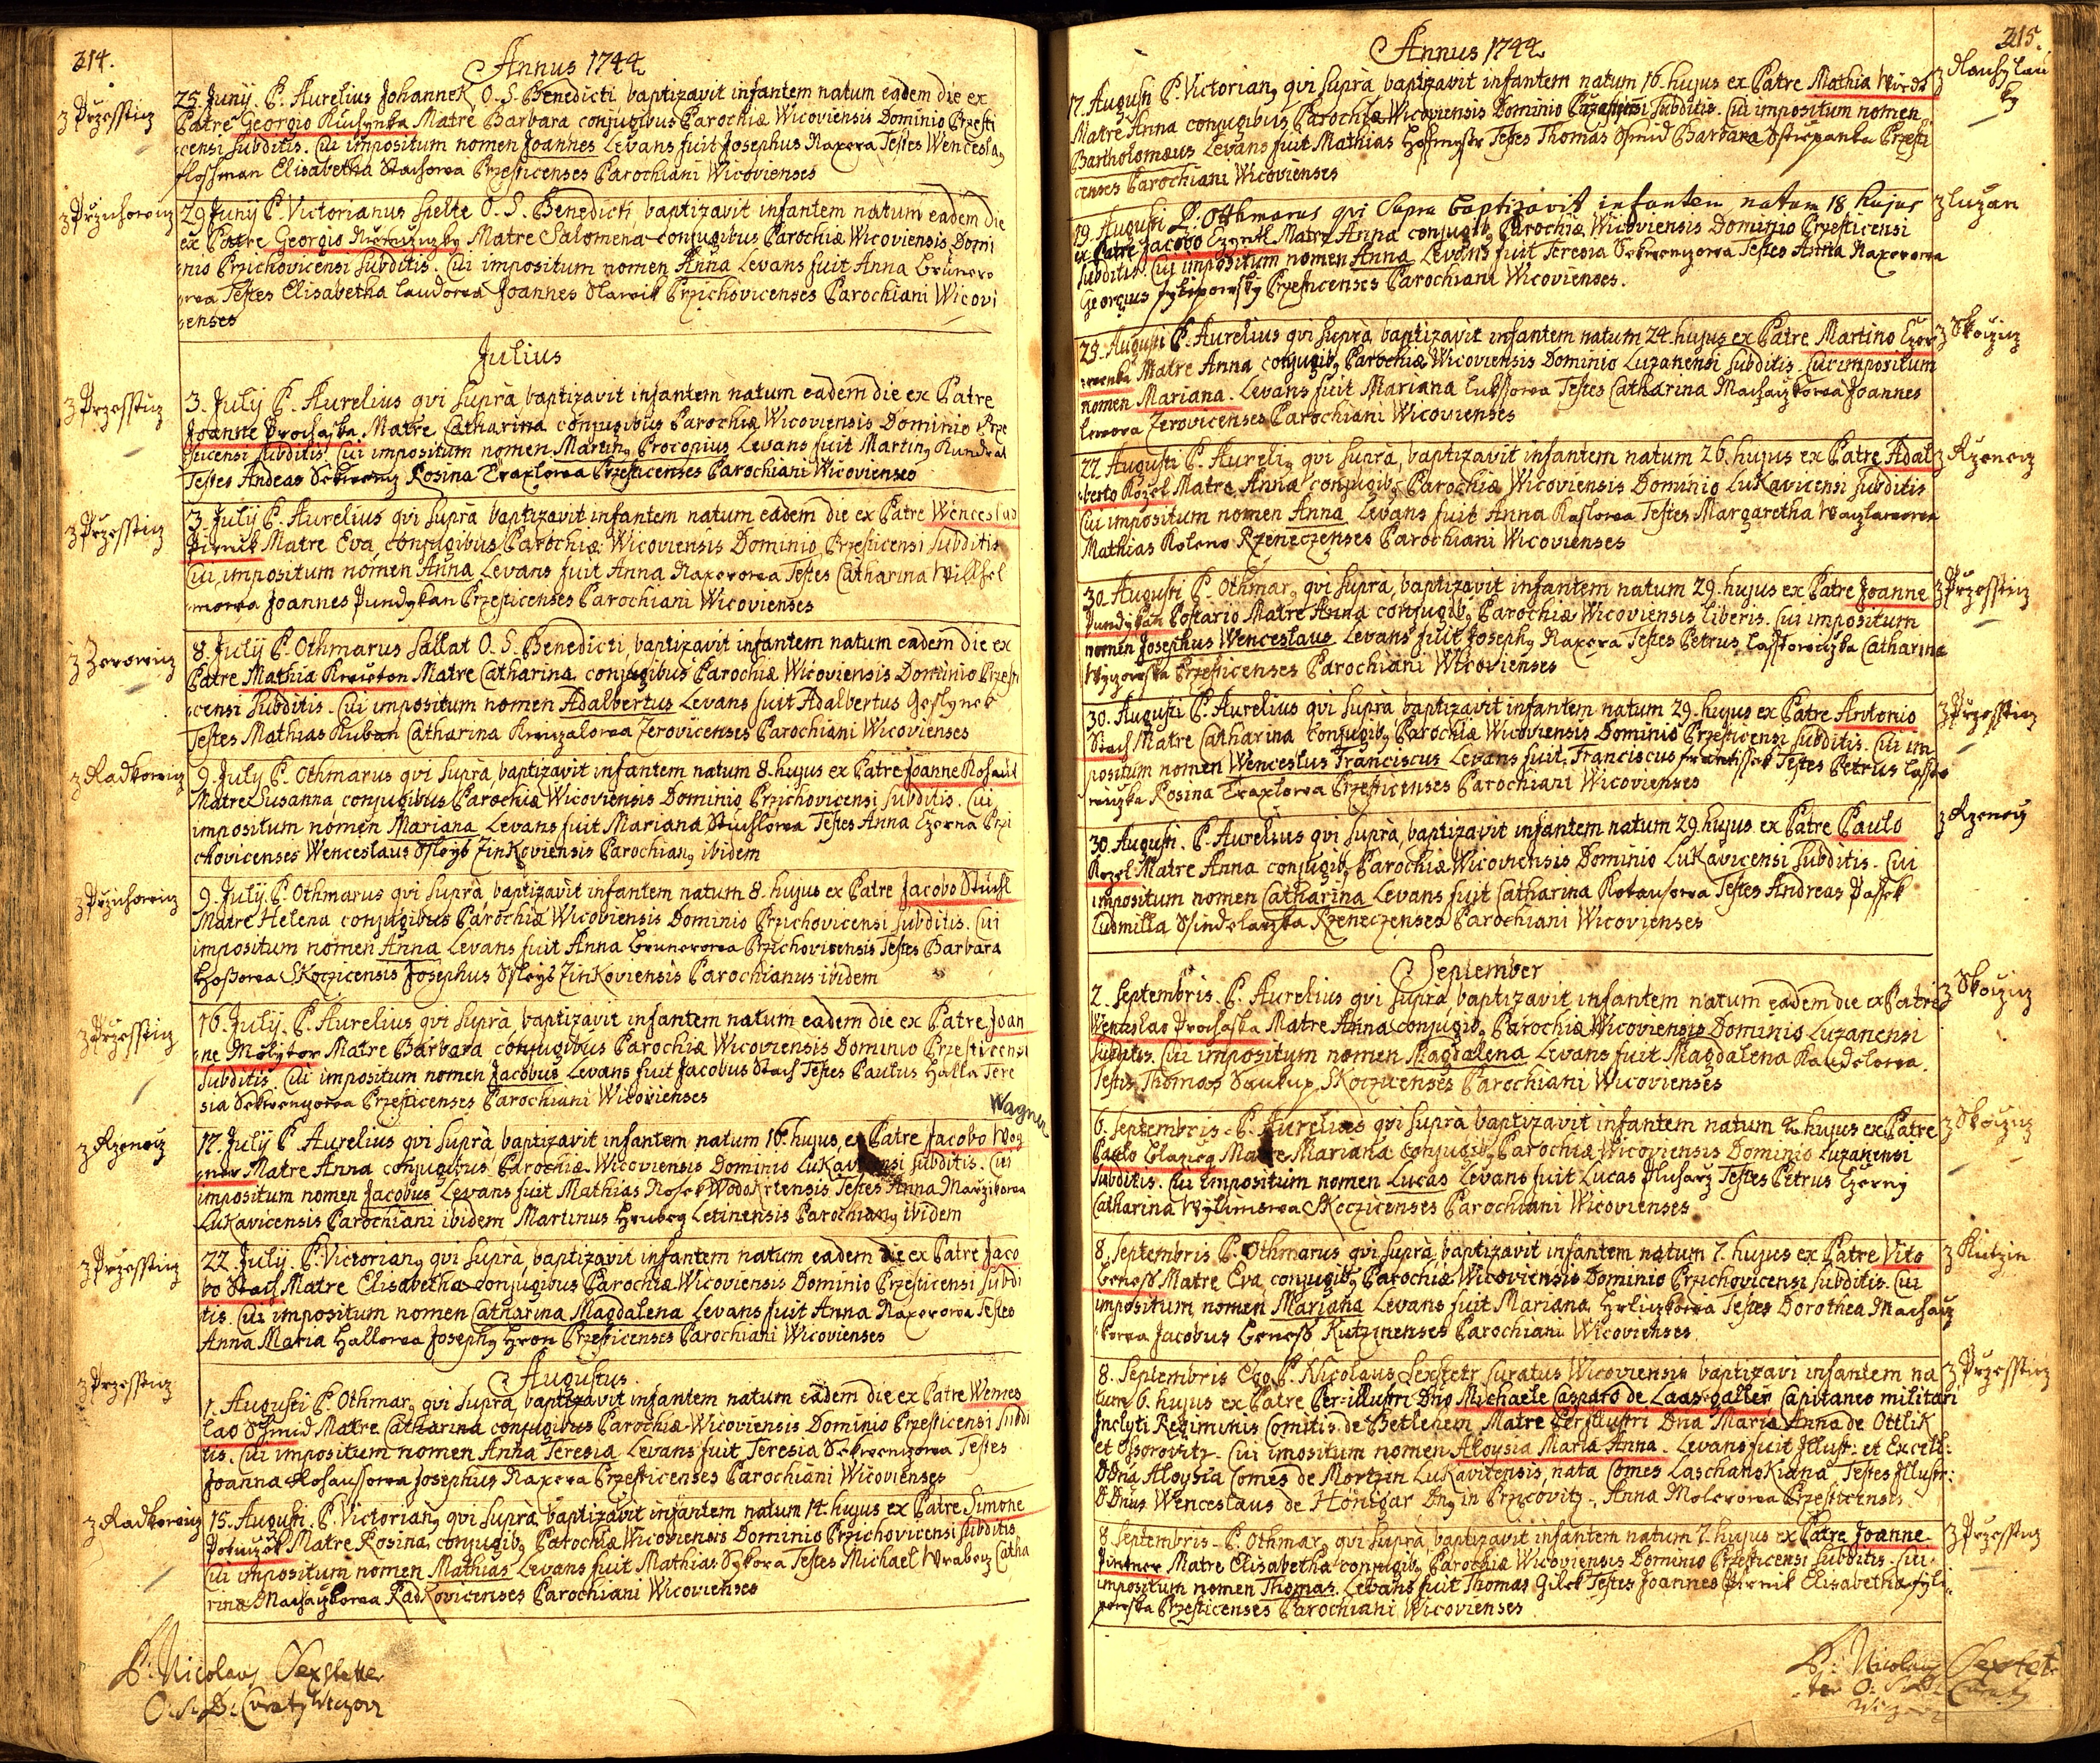 214.
Annus 1744
z Przesstiz
25. Junij. P. Aurelius Johannek O. S. Benedicti baptizavit infantem natum eadem die ex
Patre Georgio Matre Barbara conjugibus Parochiæ Wicoviensis Dominio Przesti
censi subditis. Cui impositum nomen Joannes Levans fuit Josephus Naxera Testes Wenceslaq
Hossman Elisabetha Stachowa Przesticenses Parochiani Wicovienses
z Przichowiz
29 Junij P. Victorianus O. S. Benedicti baptizavit infantem natum eadem die
ex Patre Georgio Matre Salomena conjugibus Parochiæ Wicoviensis Domi
nio Przichovicensi subditis. Cui impositum nomen Anna Levans fuit Anna Brunero
wa Testes Elisabetha Laudowa Joannes Slawik Przichovicenses Parochiani Wicovi
enses
Julius
z Przesstiz
3. Julij P. Aurelius qvi suprà baptizavit infantem natum eadem die ex Patre
Joanne Prochaska Matre Catharina conjugibus Parochiæ Wicoviensis Dominio Prze
sticensi subditis. Cui impositum nomen Martinq Procopius Levans fuit Martinq Kundrat
Testes Andeas Sekwenz Rosina Traxlowa Przesticenses Parochiani Wicovienses
z Przesstiz
3. Julij P. Aurelius qvi suprà baptizavit infantem natum eadem die ex Patre Wenceslao
Pirnik Matre Eva conjugibus Parochiæ Wicoviensis Dominio Przesticensi subditis
Cui impositum nomen Anna Levans fuit Anna Naxerowa Testes Catharina Willhel
mowa Joannes Pundykan Przesticenses Parochiani Wicovienses
z Zerowiz
8. Julij P. Othmarus Sallat O. S. Benedicti, baptizavit infantem natum eadem die ex
Patre Mathia Matre Catharina conjugibus Parochiæ Wicoviensis Dominio Przesti
censi subditis. Cui impositum nomen Adalbertus Levans fuit Adalbertus Goslynek
Testes Mathias Kuban Catharina Zerovicenses Parochiani Wicovienses
z Radkowiz
9. Julij P. Othmarus qvi suprà baptizavit infantem natum 8. hujus ex Patre Joanne Kohaut
Matre Susanna conjugibus Parochiæ Wicoviensis Dominio Przichovicensi subditis. Cui
impositum nomen Mariana Levans fuit Mariana Stuchlowa Testes Anna Czerna Przi
chovicenses Wenceslaus Ssleyb Zinkoviensis Parochianq ibidem
z Przichowiz
9. Julij P. Othmarus qvi suprà baptizavit infantem natum 8. hujus ex Patre Jacobo Stuchl
Matre Helena conjugibus Parochiæ Wicoviensis Dominio Przichovicensi subditis. Cui
impositum nomen Anna Levans fuit Anna Brunerowa Przichovicensis Testes Barbara
Skoczicensis Josephus Ssleyb Zinkoviensis Parochianus ibidem
z Przesstiz
16. Julij P. Aurelius qvi suprà baptizavit infantem natum eadem die ex Patre Joan
ne Molytor Matre Barbara conjugibus Parochiæ Wicoviensis Dominio Przesticensi
subditis. Cui impositum nomen Jacobus Levans fuit Jacobus Stach Testes Paulus Halla Tere
sia Sekwenzowa Przesticenses Parochiani Wicovienses
Wagner
z Rzeneiz
17. Julij P. Aurelius qvi suprà baptizavit infantem natum 16. hujus ex Patre Jacobo Wog
ner Matre Anna conjugibus Parochiæ Wicoviensis Dominio Lukavicensi subditis. Cui
impositum nomen Jacobus Levans fuit Mathias Nosek Testes Anna
Lukavicensis Parochiani ibidem Martinus Letinensis Parochianq ibidem
z Przesstiz
22. Julij. P. Victorianq qvi suprà baptizavit infantem natum eadem die ex Patre Jaco
bo Stach Matre Elisabetha conjugibus Parochiæ Wicoviensis Dominio Przesticensi subdi
tis. Cui impositum nomen Catharina Magdalena Levans fuit Anna Naxerowa Testes
Anna Maria Hallowa Josephq Hron Przesticenses Parochiani Wicovienses
Augustus
z Przesstiz
1. Augusti P. Othmarq qvi suprà baptizavit infantem natum eadem die ex Patre Wences
lao Schmid Matre Catharina conjugibus Parochiæ Wicoviensis Dominio Przesticensi subdi
tis. Cui impositum nomen Anna Teresia Levans fuit Teresia Sekwenzowa Testes
Joanna Josephus Naxera Przesticenses Parochiani Wicovienses
z Radkowiz
15. Augusti. P. Victorianq qvi suprà baptizavit infantem natum 14. hujus ex Patre Simone
Matre Rosina conjugibq Parochiæ Wicoviensis Dominio Przichovicensi subditis
Cui impositum nomen Mathias Levans fuit Mathias Sykora Testes Michael Wrabez Catha
rina Machaczkowa Radkovicenses Parochiani Wicovienses
P: Nicolaus Sexstetter
O: S: B: Curatq
215.
Annus 1744
17. Augusti P. Victorianq qvi suprà baptizavit infantem natum 16. hujus ex Patre Mathia
Matre Anna conjugibus Parochiæ Wicoviensis Dominio subditis. Cui impositum nomen
Bartholomæus Levans fuit Mathias Hofmestr Testes Thomas Schmid Barbara Przesti
censes Parochiani Wicovienses
z Luzan
19. Augusti P. Otthmarus qui supra baptizavit infantem natum 18 hujus
ex Patre Jacobo Matre Anna conjugibq Parochiæ Wicoviensis Dominio Przesticensi
subditis. Cui impositum nomen Anna Levans fuit Teresia Sekwenzowa Testes Anna Naxerowa
Georgius Fylipowsky Przesticenses Parochiani Wicovienses.
z Skoiziz
25. Augusti P. Aurelius qvi suprà baptizavit infantem natum 24. hujus ex Patre Martino
Matre Anna conjugibq Parochiæ Wicoviensis Dominio Luzanensi subditis. Cui impositum
nomen Mariana. Levans fuit Mariana Lukssowa Testes Catharina Machaczkowa Joannes
Zerovicenses Parochiani Wicovienses
z Rzeneiz
27. Augusti P. Aureliq qvi suprà, baptizavit infantem natum 26. hujus ex Patre Adal
berto Kozel Matre Anna conjugibq Parochiæ Wicoviensis Dominio Lukavicensi subditis
Cui impositum nomen Anna Levans fuit Anna Testes Margaretha Waczlawowa
Mathias Koleno Rzeneczenses Parochiani Wicovienses
z Przesstiz
30. Augusti P. Othmarq qvi suprà baptizavit infantem natum 29. hujus ex Patre Joanne
Pundykan Postario Matre Anna conjugibq Parochiæ Wicoviensis liberis. Cui impositum
nomen Josephus Wenceslaus Levans fuit Josephq Naxera Testes Petrus Lasstowiczka Catharina
Przesticenses Parochiani Wicovienses
z Przesstiz
30. Augusti P. Aurelius qvi suprà baptizavit infantem natum 29. hujus ex Patre Antonio
Stach Matre Catharina conjugibq Parochiæ Wicoviensis Dominio Przesticensi subditis. Cui im
positum nomen Wenceslus Franciscus Levans fuit Franciscus Frantissek Testes Petrus Lassto
wiczka Rosina Traxlowa Przesticenses Parochiani Wicovienses
z Rzeneiz
30. Augusti. P. Aurelius qvi suprà, baptizavit infantem natum 29. hujus ex Patre Paulo
Kozel Matre Anna conjugibq Parochiæ Wicoviensis Dominio Lukavicensi subditis. Cui
impositum nomen Catharina Levans fuit Catharina Testes Andreas Passek
Ludmilla Ssindelarzka Rzeneczenses Parochiani Wicovienses
September
z Skoiziz
2. Septembris. P. Aurelius qvi suprà baptizavit infantem natum eadem die ex Patre
Wenceslao Prochaska Matre Anna conjugibq Parochiæ Wicoviensis Dominio Luzanensi
subditis. Cui impositum nomen Magdalena Levans fuit Magdalena Kaudelowa.
Testis Thomas Saukup Skoczicenses Parochiani Wicovienses
z Skoiziz
6. Septembris. P. Aurelius qvi suprà baptizavit infantem natum hujus ex Patre
Paulo Matre Mariana conjugibq Parochiæ Wicoviensis Dominio Luzanensi
subditis. Cui impositum nomen Lucas Levans fuit Lucas Pluharz Testes Petrus Czerny
Catharina Wylimowa Skoczicenses Parochiani Wicovienses
z Kutzin
8. Septembris P. Othmarus qvi suprà baptizavit infantem natum 7. hujus ex Patre Vito
Beness Matre Eva conjugibq Parochiæ Wicoviensis Dominio Przichovicensi subditis. Cui
impositum nomen Mariana Levans fuit Mariana Testes Dorothea Machacz
kowa Jacobus Beness Kutzinenses Parochiani Wicovienses
z Przesstiz
8. Septembris Ego P. Nicolaus Sexstetr Curatus Wicoviensis baptizavi infantem na
tum 6. hujus ex Patre Per-illustri Dno Michaele Casparo de Laas-galler Capitaneo militari
Inclyti Regiminis Comitis de Betlehem Matre Perillustri Dna Maria Anna de Ottlik
et Osorovitz. Cui imositum nomen Aloysia Maria Anna. Levans fuit Illust: et Excell:
DDna Aloysia Comes de Mortzin Lukavitensis, nata Comes Laschanskiana. Testes Illustr:
D Dnus Wenceslaus de Hönigar Dnq in Przicovitz, Anna Molerowa Przesticensis
z Przesstiz
8. Septembris. P. Othmarq qvi suprà, baptizavit infantem natum 7. hujus ex Patre Joanne
Pintner Matre Elisabetha conjugibq Parochiæ Wicoviensis Dominio Przesticensi subditis. Cui
impositum nomen Thomas. Levans fuit Thomas Gilek Testes Joannes Pirnik Elisabetha Fyli
powska Przesticenses Parochiani Wicovienses
P: Nicolaus Sextet
ter O: S: B: Curatq